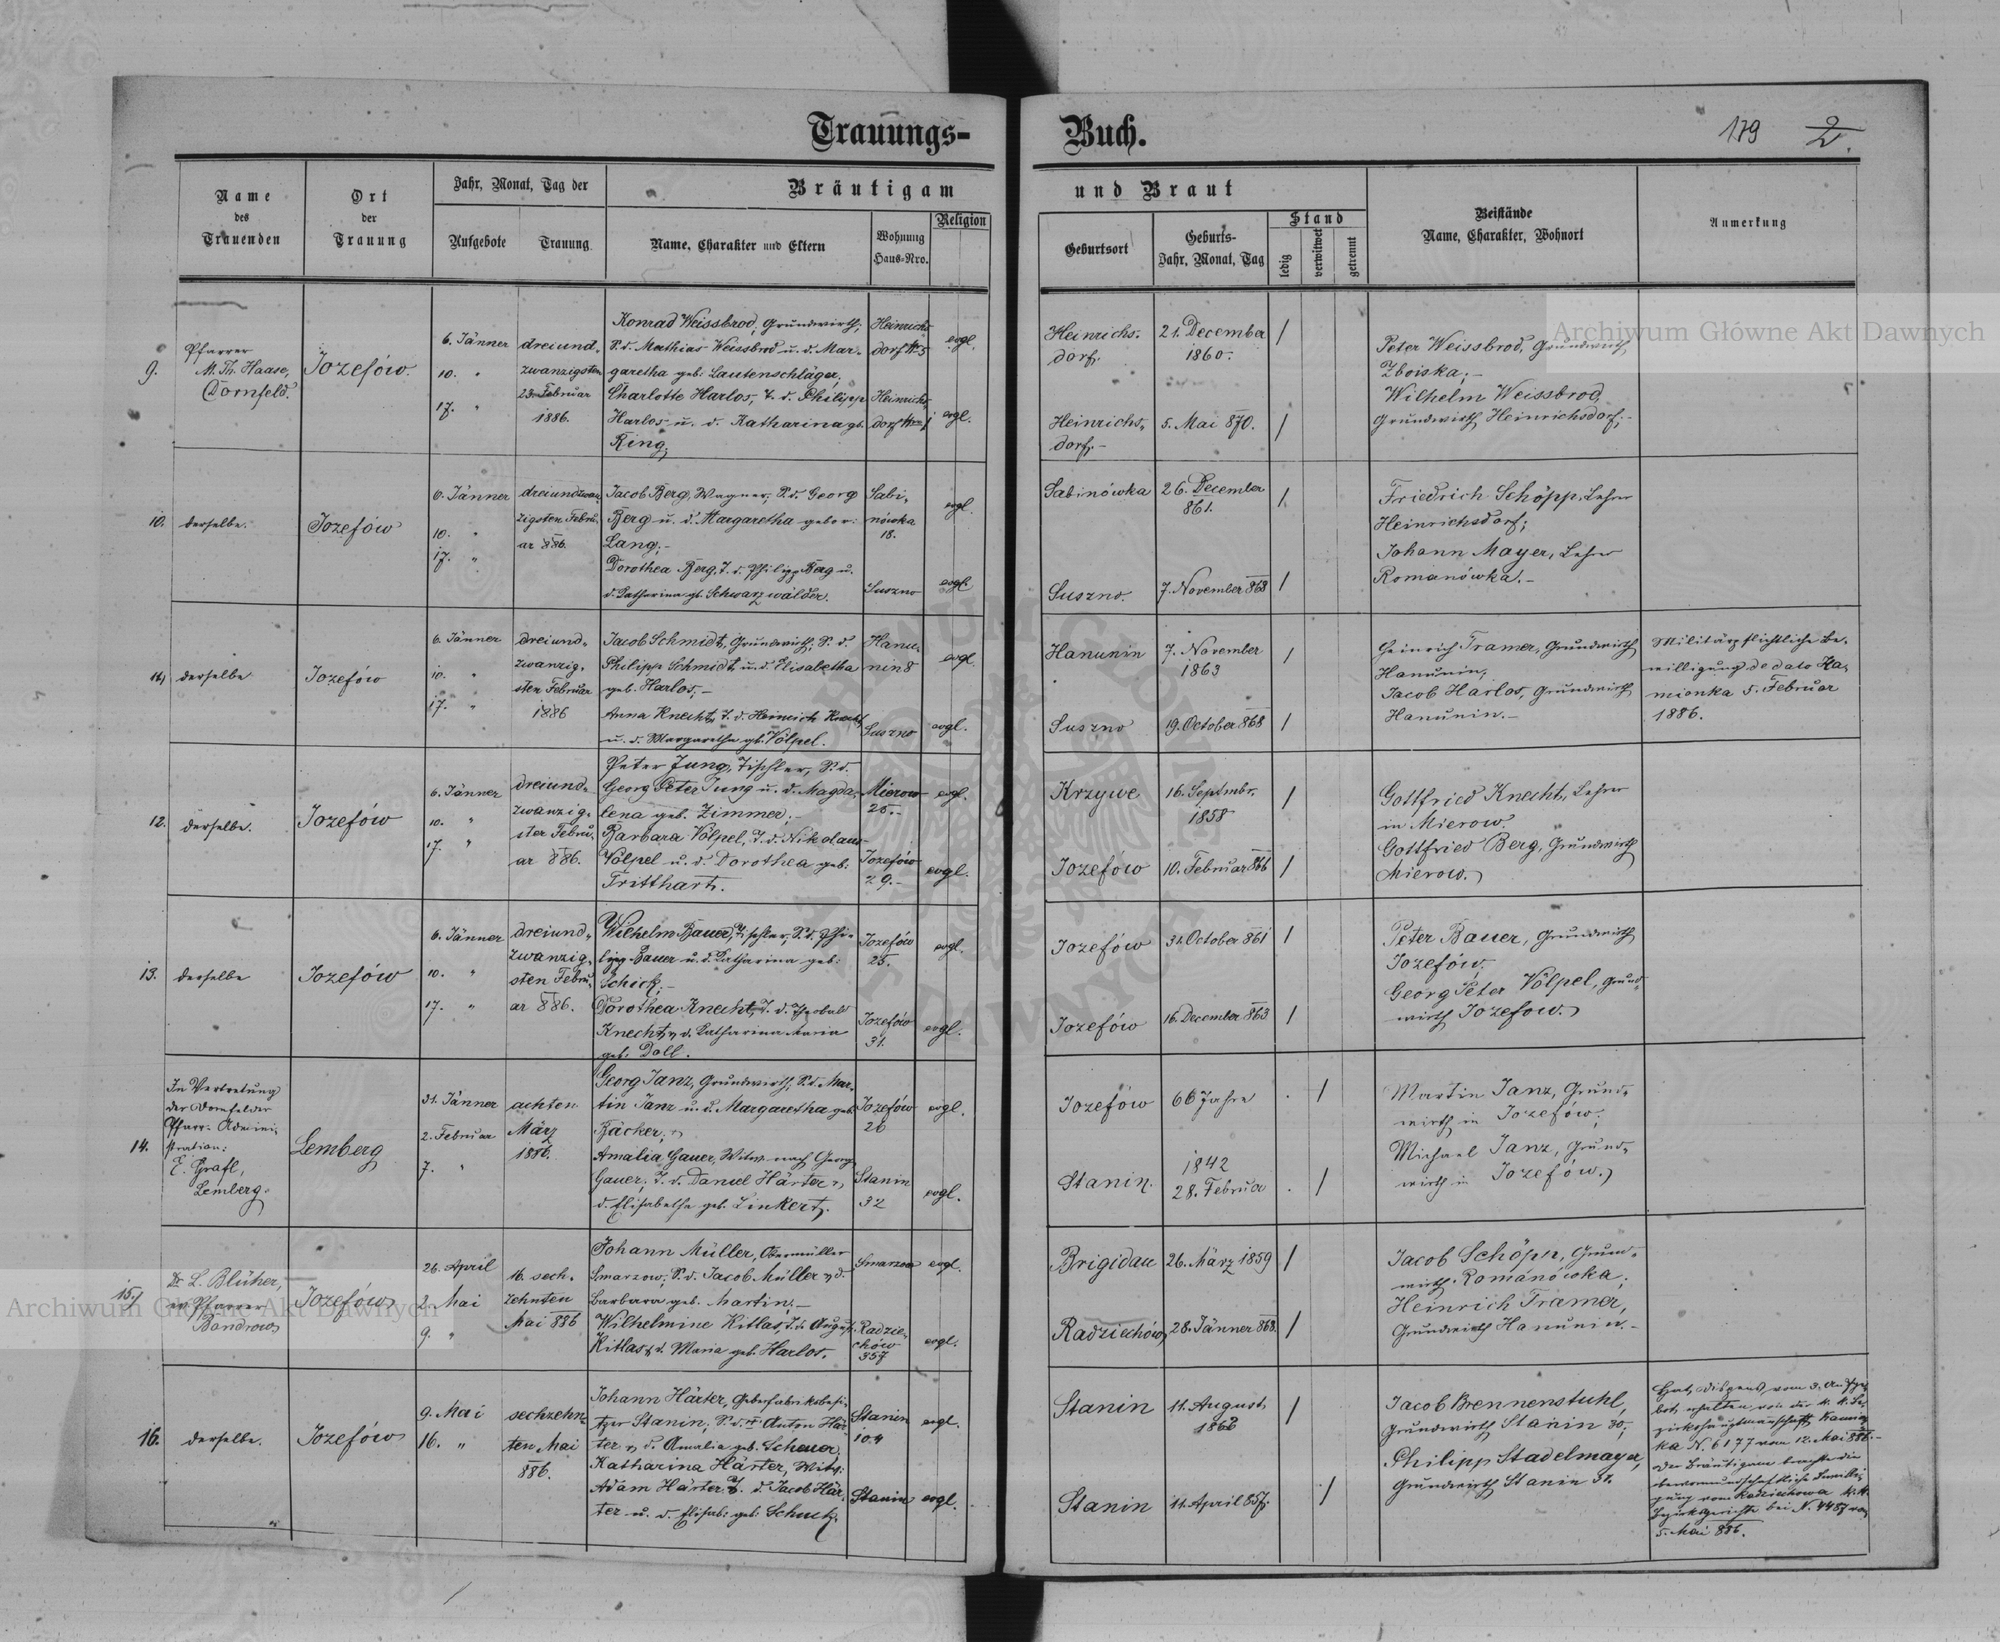 Trauungs- Buch.
179 2
Name
des
Trauenden
Ort
der
Trauung
Jahr, Monat, Tag der
Aufgebote
Trauung
Bräutigam und Braut
Name, Charakter und Eltern
Wohnung
Haus-Nro.
Religion
Geburtsort
Geburts-
Jahr, Monat, Tag
Stand
ledig
verwitwet
getrennt
Beistände
Name, Charakter, Wohnort
Anmerkung
Archiwum Główne Akt Dawnych
9.
Pfarrer
M. Th. Haase,
Dornfeld.
Jozefów.
6. Jänner
10. "
17. "
dreiund-
zwanzigsten
23. Februar
1886.
Konrad Weissbrod, Grundwirth;
S. d. Mathias Weissbrod u. d. Mar-
garetha geb: Lautenschläger,
Charlotte Harlos, T. d. Philipp
Harlos u. d. Katharina gb.
Ring.
Heinrichs-
dorf 5
Heinrichs-
dorf 1
evgl.
evgl.
Heinrichs-
dorf.
Heinrichs-
dorf. -
21. December
1860.
5. Mai 870.
Peter Weissbrod, Grundwirth
Zboiska; -
Wilhelm Weissbrod,
Grundwirth Heinrichsdorf; -
10.
derselbe.
Jozefów
6. Jänner
10. "
17. "
dreiundzwan-
zigsten Febru-
ar 886.
Jacob Berg, Wagner, S. d. Georg
Berg u. d. Margaretha gebor:
Lang; -
Dorothea Berg, T. d. Philipp Berg u.
d. Katharina gb. Schwarzwälder.
Sabi-
nówka
18.
Suszno
evgl.
evgl.
Sabinówka
Suszno.
26. December
861.
7. November 863
Friedrich Schöpp, Lehrer
Heinrichsdorf;
Johann Mayer, Lehrer
Romanówka. -
11.
derselbe
Jozefów
6. Jänner
10. "
17. "
dreiund-
zwanzig-
sten Februar
1886
Jacob Schmidt, Grundwirth; S. d.
Philipp Schmidt u. d. Elisabetha
geb. Harlos, -
Anna Knecht, T. d. Heinrich Knecht
u. d. Margaretha gb. Völpel.
Hanu-
nin 8
Suszno
evgl.
evgl.
Hanunin
Suszno
7. November
1863
19. October 868
Heinrich Tramer, Grundwirth
Hanunin,
Jacob Harlos, Grundwirth
Hanunin. -
Militärpflichtliche Be-
willigung de dato Ka-
mionka 5. Februar
1886.
12.
derselbe.
Jozefów
6. Jänner
10. "
17. "
dreiund-
zwanzig-
ster Febru-
ar 886.
Peter Jung, Tischler, S. d.
Georg Peter Jung u. d. Magda-
lena geb. Zimmer. -
Barbara Völpel, T. d. Nikolaus
Völpel u. d. Dorothea geb.
Tritthart.
Mierow
25. -
Jozefów
29. -
evgl.
evgl.
Krzywe
Jozefów
16. Septmbr.
1858
10. Februar 866
Gottfried Knecht, Lehrer
in Mierow.
Gottfried Berg, Grundwirth
Mierow.
13.
derselbe
Jozefów
6. Jänner
10. "
17. "
dreiund-
zwanzig-
sten Febru-
ar 886.
Wilhelm Bauer, Tischler, S. d. Phi-
lipp Bauer u. d. Katharina geb:
Schick; -
Dorothea Knecht, T. d. Theobald
Knecht, d. Katharina Maria
geb: Doll.
Jozefów
25.
Jozefów
31.
evgl.
evgl.
Jozefów
Jozefów
31. October 861
16. December 863
Peter Bauer, Grundwirth
Jozefów.
Georg Peter Völpel, Grund-
wirth Jozefow.
14.
In Vertretung
der Dornfelder
Pfarr-Admini-
stration:
E. Grafl,
Lemberg.
Lemberg
31. Jänner
2. Februar
7. "
achten
März
1886.
Georg Janz, Grundwirth, S. d. Mar-
tin Janz u. d. Margaretha geb
Bäcker,
Amalia Gauer, Witw. nach Georg
Gauer, T. d. Daniel Härter,
d. Elisabetha geb. Linkert.
Jozefów
26
Stanin
32
evgl.
evgl.
Jozefów
Stanin.
66 Jahre
1842
28. Februar
Martin Janz, Grund-
wirth in Jozefów;
Michael Janz, Grund-
wirth in Jozefów.
15.
Dr. L. Blüher,
ev. Pfarrer
Bandrow
Jozefów
26. April
2. Mai
9. "
16. sech-
zehnten
Mai 886
Johann Müller, Obermüller
Smarzow, S. d. Jacob Müller, d.
Barbara geb. Martin. -
Wilhelmine Kitlas, T. d. August
Kitlas, d. Maria geb. Harlos.
Smarzow
Radzie-
chów
357
evgl.
evgl.
Brigidau
Radziechów
26. März 1859
28. Jänner 868.
Jacob Schöpp, Grund-
wirth Romanówka,
Heinrich Tramer,
Grundwirth Hanunin. -
Archiwum Główne Akt Dawnych
16.
derselbe.
Jozefów
9. Mai
16. "
sechzehn-
ten Mai
886.
Johann Härter,
Stanin; S. d. Anton Här-
ter, d. Amalia geb. Scheuer.
Katharina Härter, Witw:
Adam Härter, T. d. Jacob Här-
ter u. d. Elisab: geb: Schuck.
Stanin
104
Stanin
evgl.
evgl.
Stanin
Stanin
11. August
11. April 857.
Jacob Brennenstuhl,
Grundwirth Stanin 30,
Philipp Stadelmayer,
Grundwirth Stanin 31.
Hat Dispens vom 3. Aufge-
bot erhalten von der k. k. Be-
zirkshauptmannschaft Kamion-
ka N. 6177 vom 12. Mai 886. -
Der Bräutigam brachte die
bevormundschaftliche Bewilli-
gung vom Radziechowa k. k.
Bezirksgerichte bei N. 4487 vom
5. Mai 886.